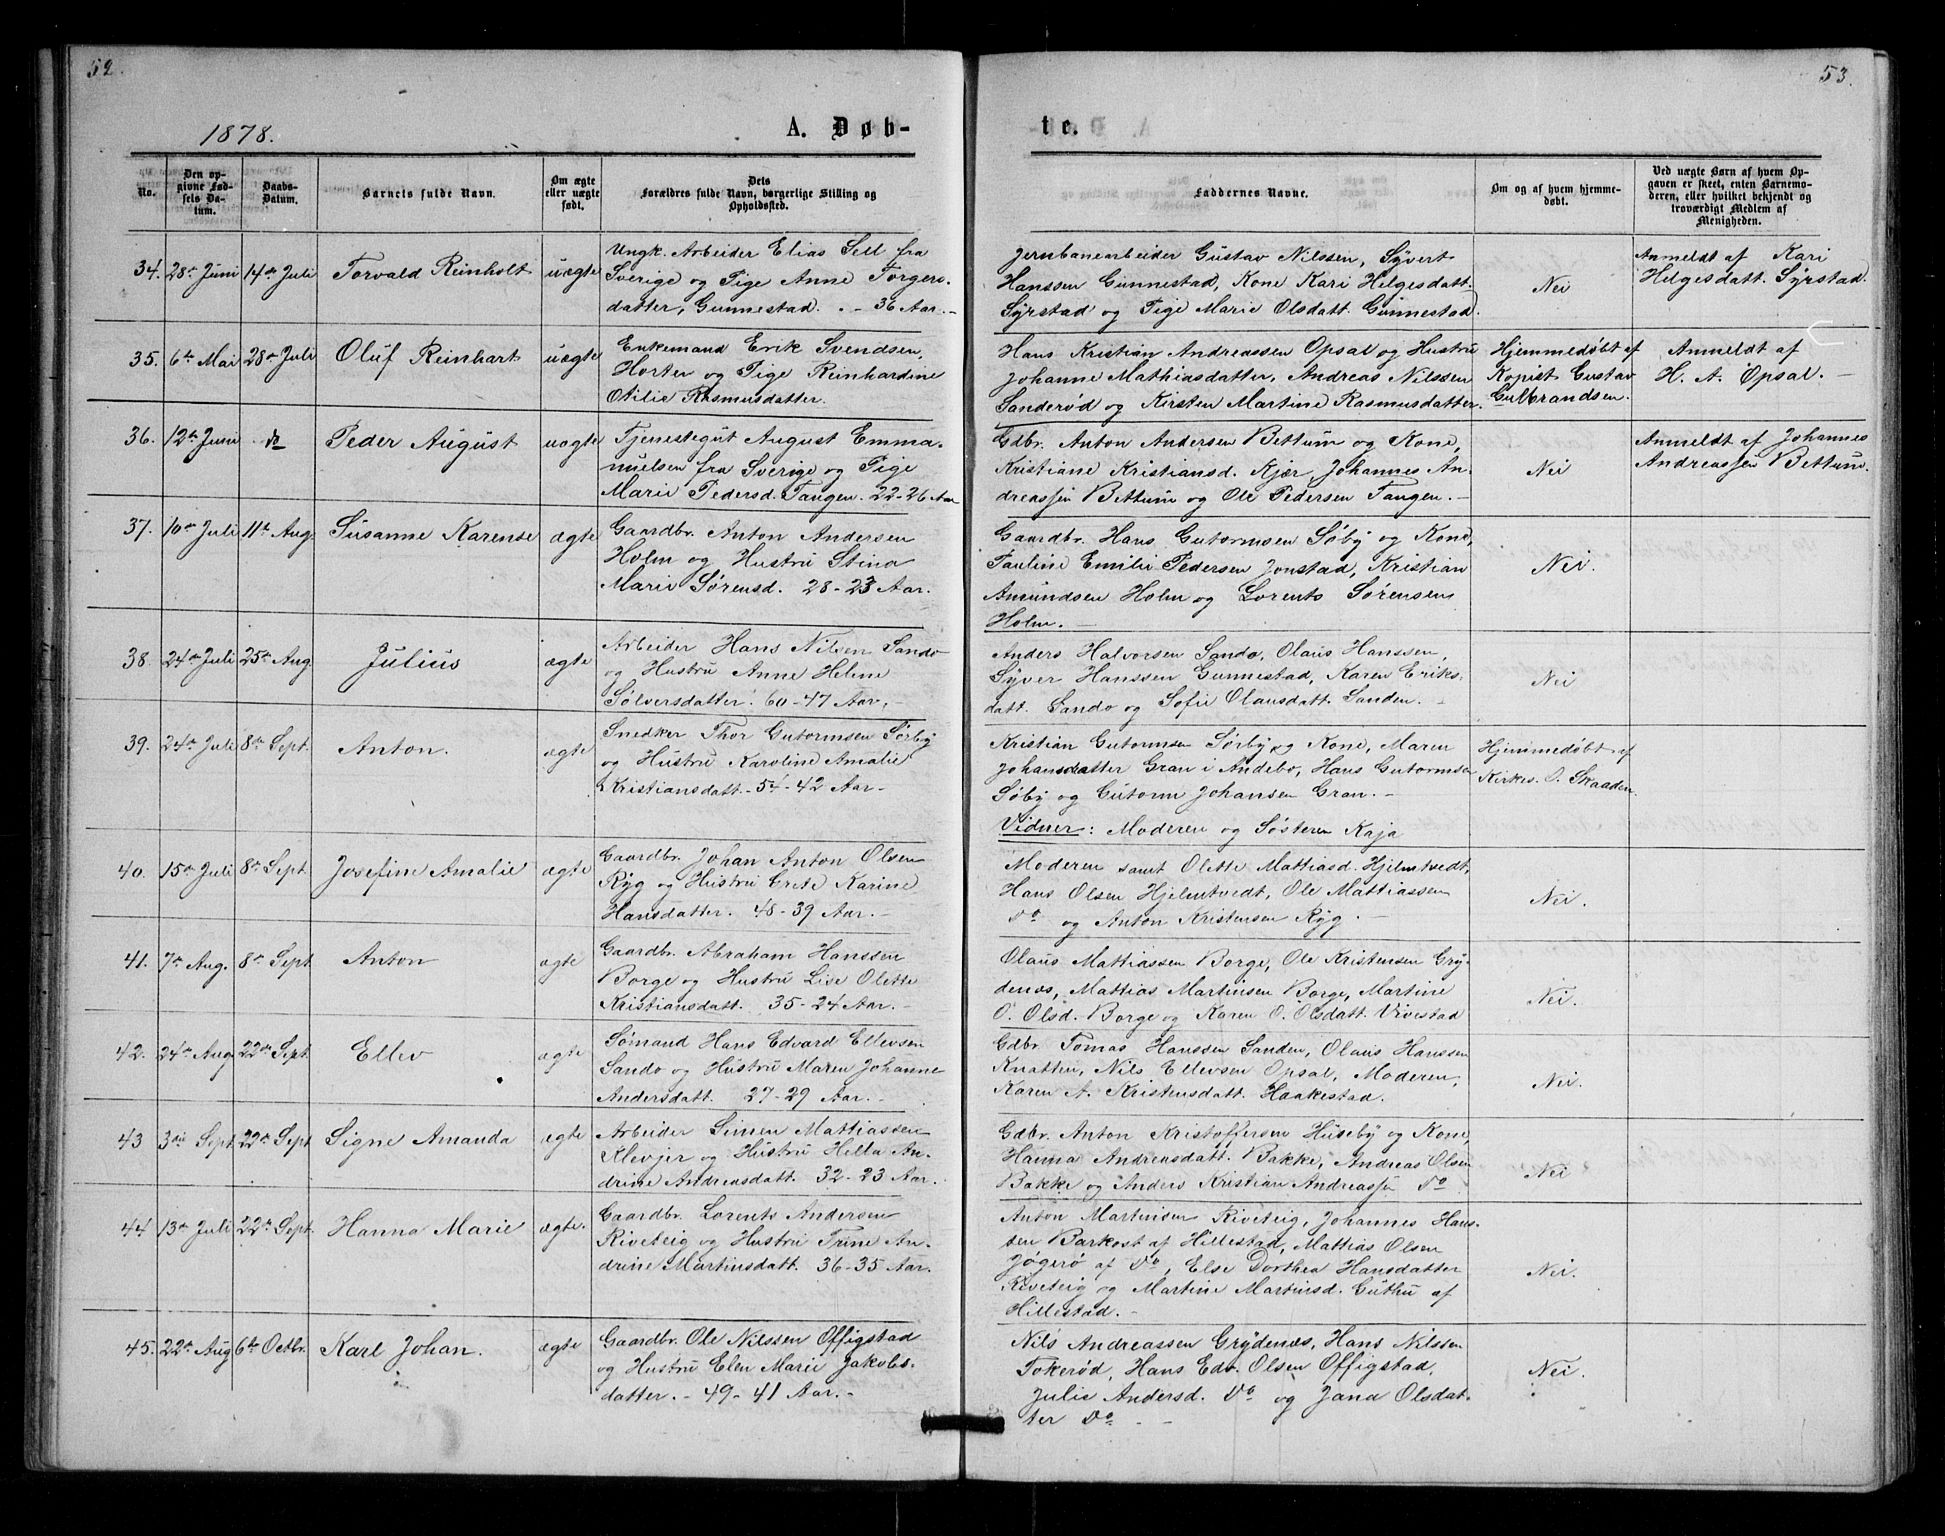 52.
1878.
A. Døb-
No.
Den op-
givne Fød-
sels Da-
tum.
Daabs-
Datum.
Barnets fulde Navn.
Om ægte
eller uægte
født.
Dets
Forældres fulde Navn, borgerlige Stilling og
Opholdssted.
34. 28de Juni 14de Juli Torvald Reinholt uægte
Ungk. Arbeider Elias Sell fra
Sverige og Pige Anne Torgers-
datter, Gunnestad. - 36 Aar.-
35. 6te Mai 28de Juli Oluf Reinhart uægte
Enkemand Erik Svendsen,
Horten og Pige Reinhardine
Otilie Rasmusdatter.
36. 12te Juni do Peder August uægte
Tjenestegut August Emma-
nuelsen fra Sverige og Pige
Marie Pedersd. Tangen. 22-26 Aar
37. 10de Juli 11te Aug. Susanne Karense ægte
Gaardbr. Anton Andersen
Holm og Hustru Stina
Marie Sørensd. 28-23 Aar.
38. 24de Juli 25de Aug. Julius ægte
Arbeider Hans Nilsen Sando
og Hustru Anne Helene
Sølversdatter. 60-47 Aar.-
39. 24de Juli 8de Sept. Anton. ægte
Snedker Thor Gutormsen Sørby
og Hustru Karoline Amalie
Kristiansdatt.- 54-42 Aar-
40. 15de Juli 8de Sept. Josefine Amalie ægte
Gaardbr. Johan Anton Olsen
Ryg og Hustru Grete Karine
Hansdatter. 48-39 Aar.-
41. 7de Aug. 8de Sept. Anton ægte
Gaardbr. Abraham Hanssen
Borge og Hustru Lise Olette
Kristiansdatt. 35-24 Aar.-
42. 24de Aug. 22de Sept. Ellev ægte
Sømand Hans Edvard Ellevsen
Sando og Hustru Maren Johanne
Andersdatt. 27-29 Aar.-
43 3die Sept. 22de Sept Signe Amanda ægte
Arbeider Simen Mattiassen
Klevjer og Hustru Hella An-
drine Andreasdatt. 32-23 Aar.
44 13de Juli 22de Sept. Hanna Marie ægte.
Gaardbr. Lorents Andersen
Riveteig og Hustru Trine An-
drine Martinsdatt. 36-35 Aar.
45. 22de Aug 6te Octbr. Karl Johan. ægte
Gaardbr. Ole Nilssen Offigstad
og Hustru Elen Marie Jakobs-
datter.- 49-41 Aar.-
53.
te.
Faddernes Navne.
Om og af hvem hjemme-
døbt.
Ved uægte Børn af hvem Op-
gaven er skeet, enten Barnemo-
deren, eller hvilket bekjendt og
troværdigt Medlem af
Menigheden.
Jernbanearbeider Gustav Nilssen, Syvert
Hanssen Gunnestad, Kone Kari Helgesdatt.
Syrstad og Pige Marie Olsdatt. Gunnestad.
Nei
Anmeldt af Kari
Helgesdatt. Syrstad.
Hans Kristian Andreassen Opsal og Hustru
Johanne Mathiasdatter, Andreas Nilssen
Sanderød og Kirsten Martine Rasmusdatter.
Hjemmedøbt af
Kopist Gustav
Gulbrandsen.
Anmeldt af
H. A. Opsal.-
Gdbr. Anton Andersen Bettum og Kone,
Kristiane Kristiansd. Kjær, Johannes An-
dreassen Bettum og Ole Pedersen Tangen.-
Nei
Anmeldt af Johannes
Andreassen Bettum.
Gaardbr. Hans Gutormsen Søby og Kone,
Pauline Emilie Pedersen Jonstad, Kristian
Amundsen Holm og Lorents Sørensen
Holm.-
Nei.
Anders Halvorsen Sando, Olaus Hanssen,
Syver Hanssen Gunnestad, Karen Eriks-
datt. Sando og Sofie Olausdatt. Sanden.-
Nei
Kristian Gutormsen Sørby og Kone, Maren
Johansdatter Gran i Andebo, Hans Gutormsen
Søby og Gutorm Johansen Gran.-
Vidner: Moderen og Søsteren Kaja
Hjemmedøbt af
Kirkes. O. Skaaden.
Moderen samt Olette Mattiasd. Hjelmtvedt,
Hans Olsen Hjelmtvedt, Ole Mattiassen
do og Anton Kristensen Ryg.-
Nei.
Olaus Mattiassen Borge, Ole Kristensen Gry-
denæs, Mattias Martinsen Borge, Martine
O. Olsd. Borge og Karen O. Olsdatt. Vivestad
Nei.
Gdbr. Tomas Hanssen Sanden, Olaus Hanssen
Knatten, Nils Ellevsen Opsal, Moderen,
Karen A. Kristensdatt. Haakestad.
Nei.
Gdbr. Anton Kristoffersen Huseby og Kone,
Hanna Andreasdatt. Bakke, Andreas Olsen
Bakke og Anders Kristian Andreassen do
Nei
Anton Martinsen Riveteig, Johannes Hans-
sen Barkost af Hillestad, Mattias Olsen
Jøgerø af do, Else Dorthea Hansdatter
Riveteig og Martine Martinsd. Guthu af
Hillestad.-
Nei.
Nils Andreassen Grydenæs, Hans Nilssen
Tokerød, Hans Edv. Olsen Offigstad,
Julie Andersd. do og Jana Olsdat-
ter do.
Nei.